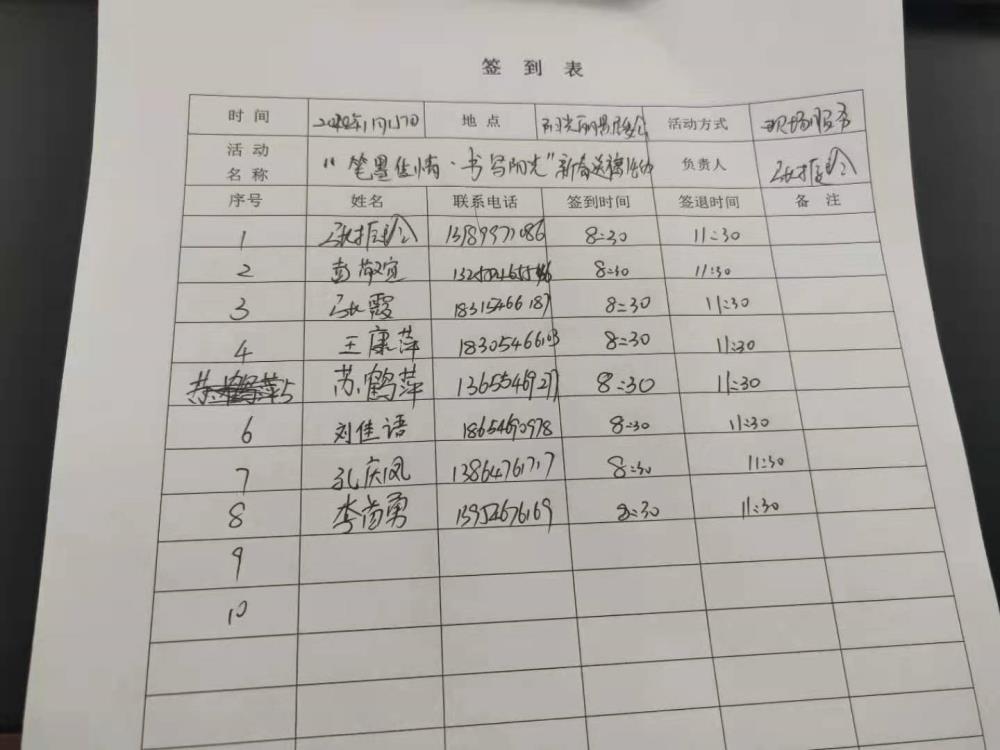 签 到 表
时 间 地 点 活动方式 现场服务
活 动 名 称 “笔墨传情·书写阳光”新春送福活动 负责人
序号 姓名 联系电话 签到时间 签退时间 备 注
1 8:30 11:30
2 8:30 11:30
3 张霞 18315466187 8:30 11:30
4 王康萍 18305466103 8:30 11:30
5 苏鹤萍 8:30 11:30
6 刘佳语 18654690978 8:30 11:30
7 孔庆凤 13864761717 8:30 11:30
8 李尚勇 13954676169 8:30 11:30
9
10